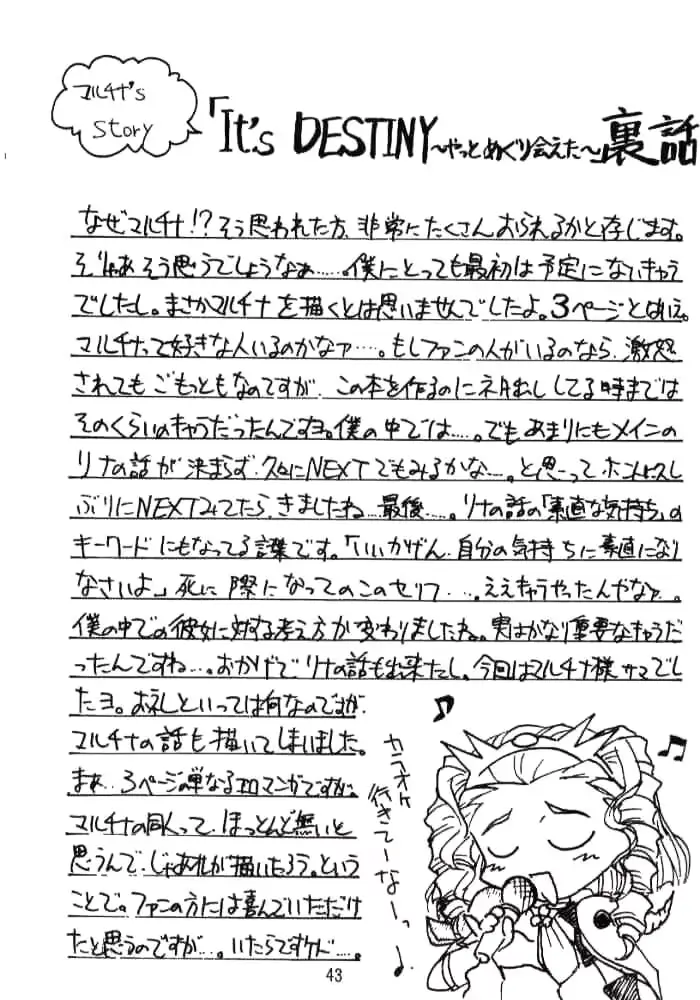 マルチナ's
Story
「It's DESTINY～やっとめぐり会えた～」裏話
なぜマルチナ!?そう思われた方、非常にたくさんおられるかと存じます。
そりゃあそう思うでしょうなぁ……。僕にとっても最初は予定にないキャラ
でしたし。まさかマルチナを描くとは思いませんでしたよ。3ページとはいえ。
マルチナって好きな人いるのかなァ…。もしファンの人がいるのなら、激怒
されてもごもっともなのですが、この本を作るのにネタ出ししてる時までは
そのくらいのキャラだったんですヨ。僕の中では……。でもあまりにもメインの
リナの話が決まらず、久々にNEXTでもみるかな……。と思ってホントに久し
ぶりにNEXTみてたら、きましたね…最後……。リナの話の「素直な気持ち」の
キーワードにもなってる言葉です。「いいかげん、自分の気持ちに素直になり
なさいよ」死に際になってのこのセリフ……。ええキャラやったんやなァ…。
僕の中での彼女に対する考え方が変わりましたね。実はかなり重要なキャラだ
ったんですね…。おかげでリナの話も出来たし。今回はマルチナ様サマでし
たヨ。お礼といっては何なのですが、
マルチナの話も描いてしまいました。
まぁ…3ページの単なるエロマンガですが。
マルチナの同人って、ほっとんど無いと
思うんで、じゃあオレが描いたろう。という
ことで。ファンの方には喜んでいただけ
たと思うのですが…。いたらですケド…。
カラオケ
行きてーなーっ
43